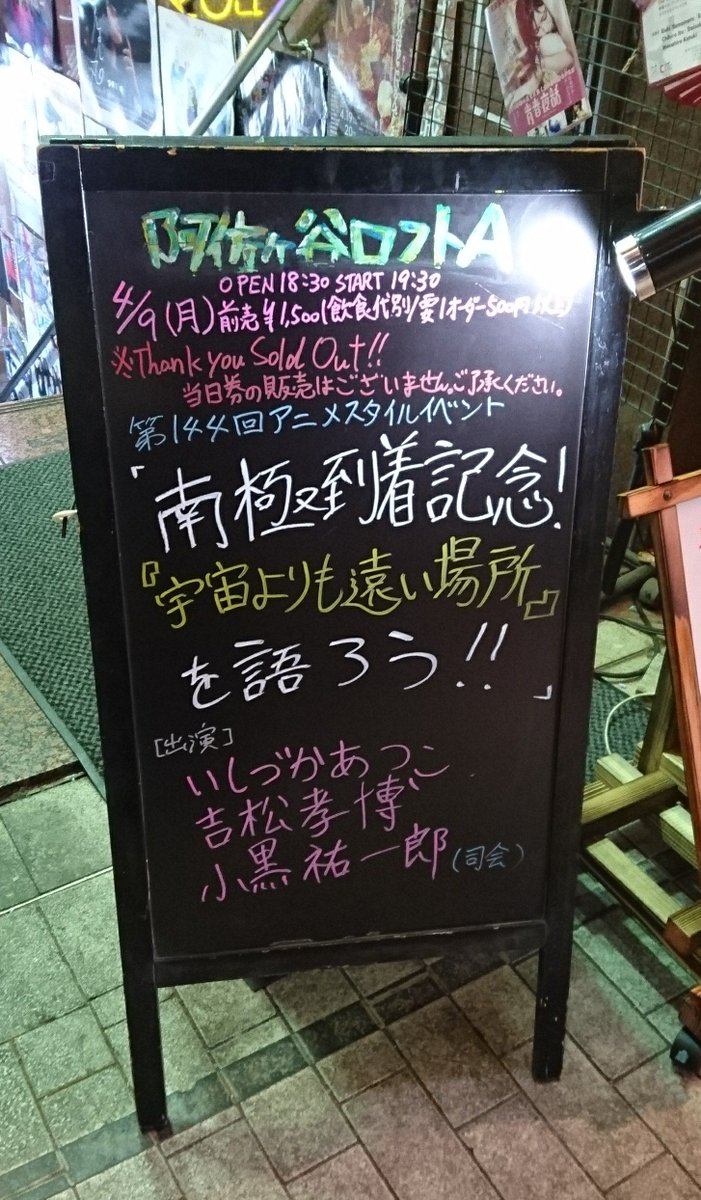 阿佐ヶ谷ロフトA
OPEN 18:30 START 19:30
4/9(月)前売¥1,500(飲食代別/要1オーダー500円以上)
※Thank you Sold Out!!
当日券の販売はございません。ご了承ください。
第144回アニメスタイルイベント
「南極到着記念!
『宇宙よりも遠い場所』
を語ろう!!」
[出演]
いしづかあつこ
吉松孝博
小黒祐一郎(司会)
青春夜話